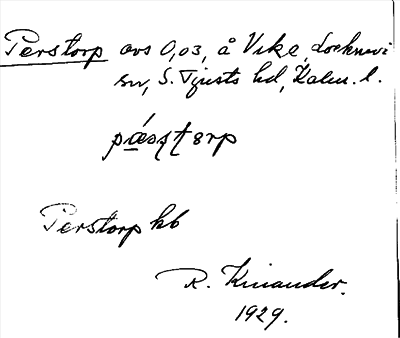 Perstorp avs 0,03, å Vike, Locknevi
sn, S. Tjusts hd, Kalm. l.
Perstorp kb
R. Kinander.
1929.